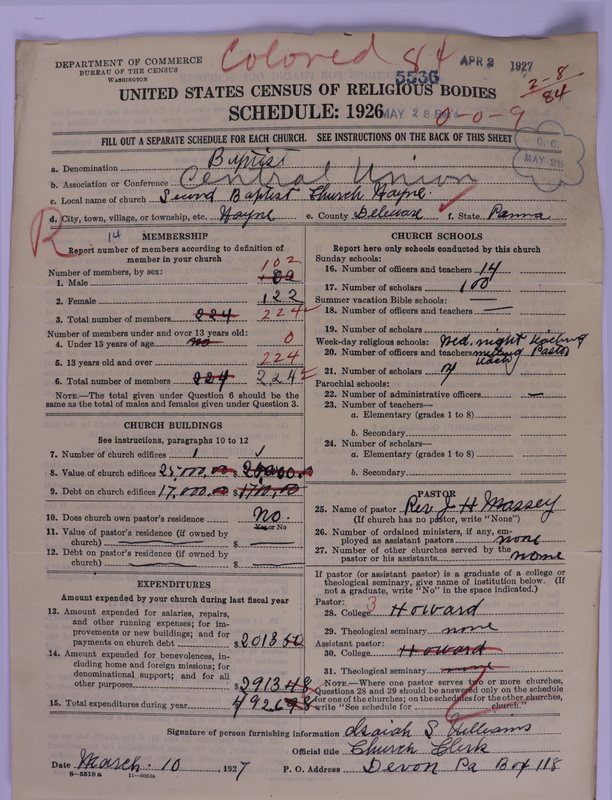 Colored 84
APR 2 1927
DEPARTMENT OF COMMERCE
BUREAU OF THE CENSUS
WASHINGTON
5536
2-8
84
UNITED STATES CENSUS OF RELIGIOUS BODIES
SCHEDULE: 1926
MAY 28
0-0-9
FILL OUT A SEPARATE SCHEDULE FOR EACH CHURCH. SEE INSTRUCTIONS ON THE BACK OF THIS SHEET
C. C.
MAY 28
a. Denomination Baptist
b. Association or Conference Central Union
c. Local name of church Second Baptist Church Wayne.
d. City, town, village, or township, etc. Wayne e. County Delaware f. State Penna
R
14
MEMBERSHIP
Report number of members according to definition of
member in your church
Number of members, by sex:
102
1. Male
2. Female 122
3. Total number of members 224 224
Number of members under and over 13 years old:
4. Under 13 years of age no 0
5. 13 years old and over 224
6. Total number of members 224 224
NOTE.—The total given under Question 6 should be
same as the total of males and females given under Question 3.
CHURCH BUILDINGS
See instructions, paragraphs 10 to 12
7. Number of church edifices 1
8. Value of church edifices 25,000.00 $
9. Debt on church edifices 17,000.00 $
10. Does church own pastor's residence No.
Yes or No
11. Value of pastor's residence (if owned by
church) $
12. Debt on pastor's residence (if owned by
church) $
EXPENDITURES
Amount expended by your church during last fiscal year
13. Amount expended for salaries, repairs,
and other running expenses; for im-
provements or new buildings; and for
payments on church debt $2013 50
14. Amount expended for benevolences,
including home and foreign missions; for
denominational support; and for all
other purposes $2913 48
15. Total expenditures during year 4926 98
CHURCH SCHOOLS
Report here only schools conducted by this church
Sunday schools:
16. Number of officers and teachers 14
17. Number of scholars 100
Summer vacation Bible schools:
18. Number of officers and teachers —
19. Number of scholars
Week-day religious schools: Wed. night teaching
20. Number of officers and teachers meeting Pastor
21. Number of scholars
Parochial schools:
22. Number of administrative officers —
23. Number of teachers—
a. Elementary (grades 1 to 8)
b. Secondary
24. Number of scholars—
a. Elementary (grades 1 to 8)
b. Secondary
PASTOR
25. Name of pastor Rev. J H Massey
(If church has no pastor, write "None")
26. Number of ordained ministers, if any, em-
ployed as assistant pastors none
27. Number of other churches served by the
pastor or his assistants none
If pastor (or assistant pastor) is a graduate of a college or
theological seminary, give name of institution below. (If
not a graduate, write "No" in the space indicated.)
Pastor:
28. College 3 Howard
29. Theological seminary none
Assistant pastor:
30. College Howard
31. Theological seminary none
NOTE.—Where one pastor serves two or more churches,
Questions 28 and 29 should be answered only on the schedule
for one of the churches; on the schedules for the other churches,
write "See schedule for church."
Signature of person furnishing information Isaiah S Williams
Official title Church Clerk
Date March 10, 1927 P. O. Address Devon Pa Box 118
8—5518 a 11—9054a